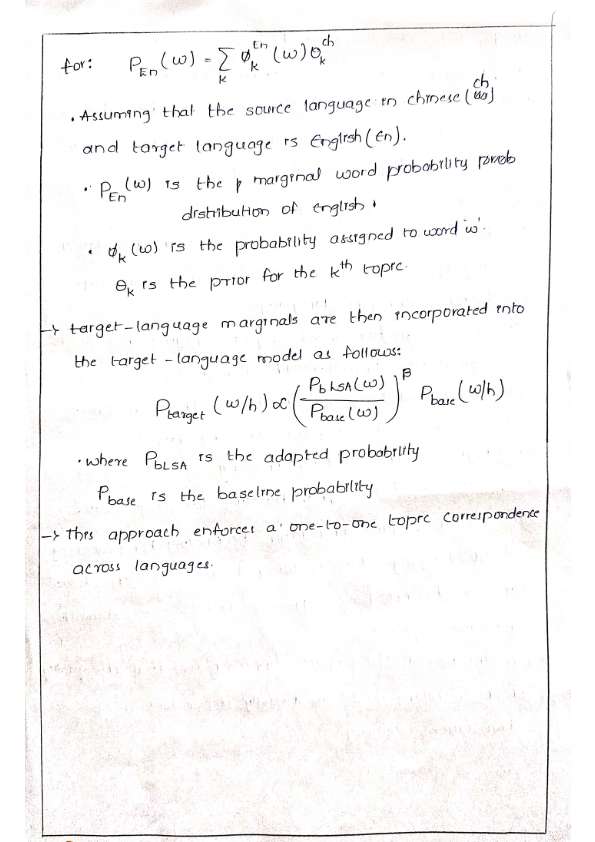 for: P_En (w) = Σ_k ϕ_k^En (w) θ_k^ch
• Assuming that the source language in chinese (ch)
and target language is English (En).
• P_En (w) is the marginal word probability
distribution of english.
• ϕ_k (w) is the probability assigned to word 'w'.
θ_k is the prior for the k^th topic.
-> target-language marginals are then incorporated into
the target-language model as follows:
P_target (w/h) ∝ (P_bLSA(w) / P_base(w))^β P_base (w/h)
• where P_bLSA is the adapted probability
P_base is the baseline probability
-> this approach enforces a one-to-one topic correspondence
across languages.